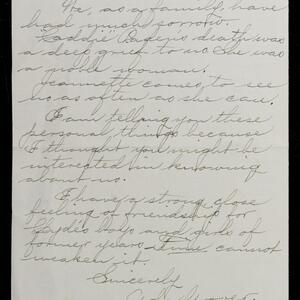 We, as a family, have
had much sorrow.
death was
a deep grief to us. She was
a noble woman.
Jeannette comes to see
us as often as she can.
I am telling you these
personal things because
I thought you might be
interested in knowing
about us.
I have a strong close
feeling of friendship for
Clyde's boys and girls of
former years. Time cannot
weaken it.
Sincerely